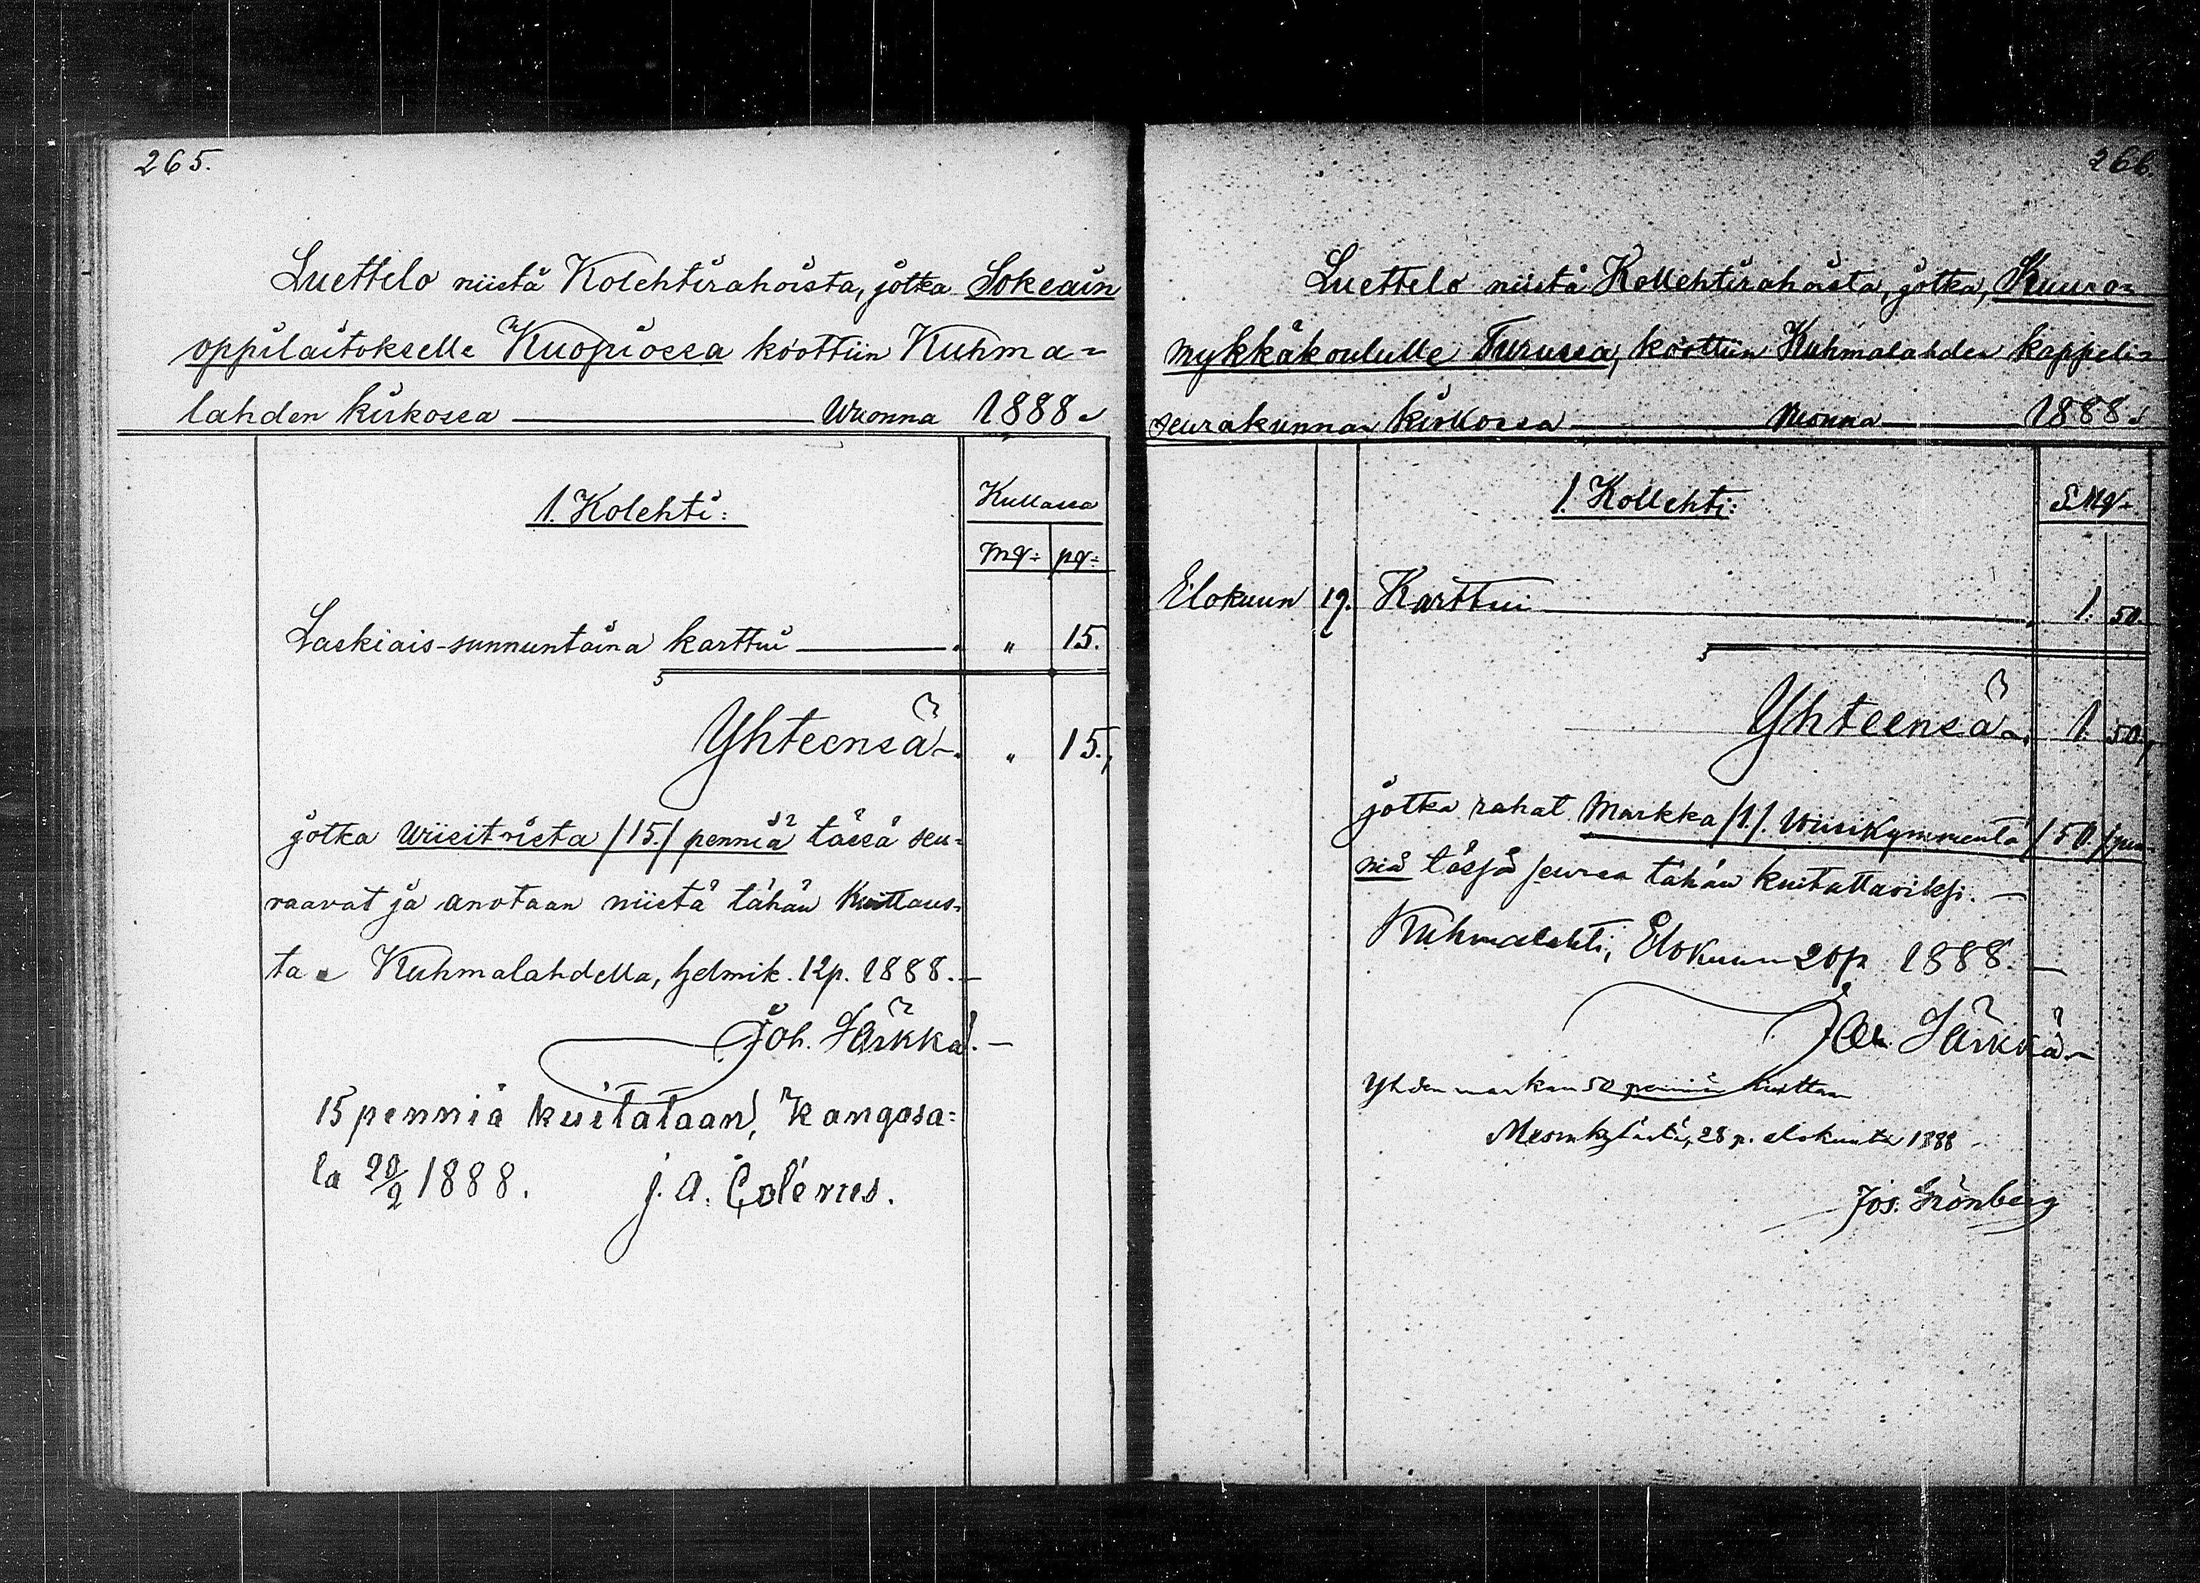 265.
Luettelo niistä Kolehtirahoista, jotka Sokeain
oppilaitokselle Kuopiossa koottiin Kuhma=
lahden kirkossa Wuonna 1888.
1. Kolehti:
Kullassa
Mk: pk:
Laskiais-sunnuntaina karttui . " 15.
Yhteensä . " 15.,
jotka wiisitoista /15./ penniä tässä seu=
raavat ja anotaan niistä tähän Kuittaus=
ta. Kuhmalahdella, helmik. 12p. 1888.
Joh. Särkkä.
15 penniä kuitataan, Kangasa=
la 20/2 1888. J. A. Colérus.
266.
Luettelo niistä Kollehtirahoista, jotka, Kuuro=
mykkäkoululle Turussa, koottiin Kuhmalahden kappeli=
seurakunnan kirkossa Wuonna 1888.
1. Kollehti:
S. Mk.
Elokuun 19. Karttui 1. 50.
Yhteensä 1. 50.,
jotka rahat Markka /1./. Wiisikymmentä /50./ pen=
niä tässä seuraa tähän kuitattaviksi.
Kuhmalahti, Elokuun 20p. 1888.
Joh. Särkkä.
Yhden markan 50 penniä kuittaa
Messukylästä, 28 p. elokuuta 1888
Jos. Grönberg